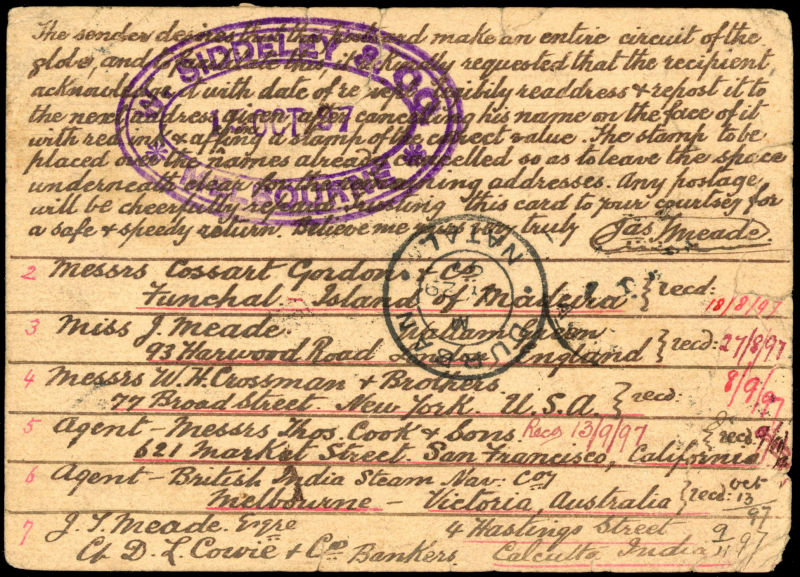 The sender desires that the postcard make an entire circuit of the
globe, and to facilitate this, it is kindly requested that the recipient,
acknowledge it with date of receipt legibly readdress & repost it to
the next address given, after cancelling his name on the face of it
with red ink & affixing a stamp of the correct value. The stamp to be
placed over the names already cancelled so as to leave the space
underneath clear for the remaining addresses. Any postage,
will be cheerfully repaid. Trusting this card to your courtesy for
a safe & speedy return. Believe me yours very truly Jas. Meade.
W. SIDDELEY & CO.
OCT 97
MELBOURNE
DURBAN
NATAL
2 Messrs Cossart Gordon & Co
Funchal - Island of Madeira } recd: 18/8/97
3 Miss J. Meade.
93 Harwood Road England } recd: 27/8/97
4 Messrs W. H. Crossman & Brothers
77 Broad Street. New York. U.S.A. } recd: 8/9/97
5 Agent - Messrs Thos. Cook & Sons. Recd 13/9/97 } recd:
621 Market Street. San Francisco, California
6 Agent - British India Steam Nav: Coy
Melbourne - Victoria, Australia } recd: Oct 13 97
7 J. S. Meade. Esqre 4 Hastings Street 9/11 97
C/o D. L. Cowie & Co Bankers Calcutta India